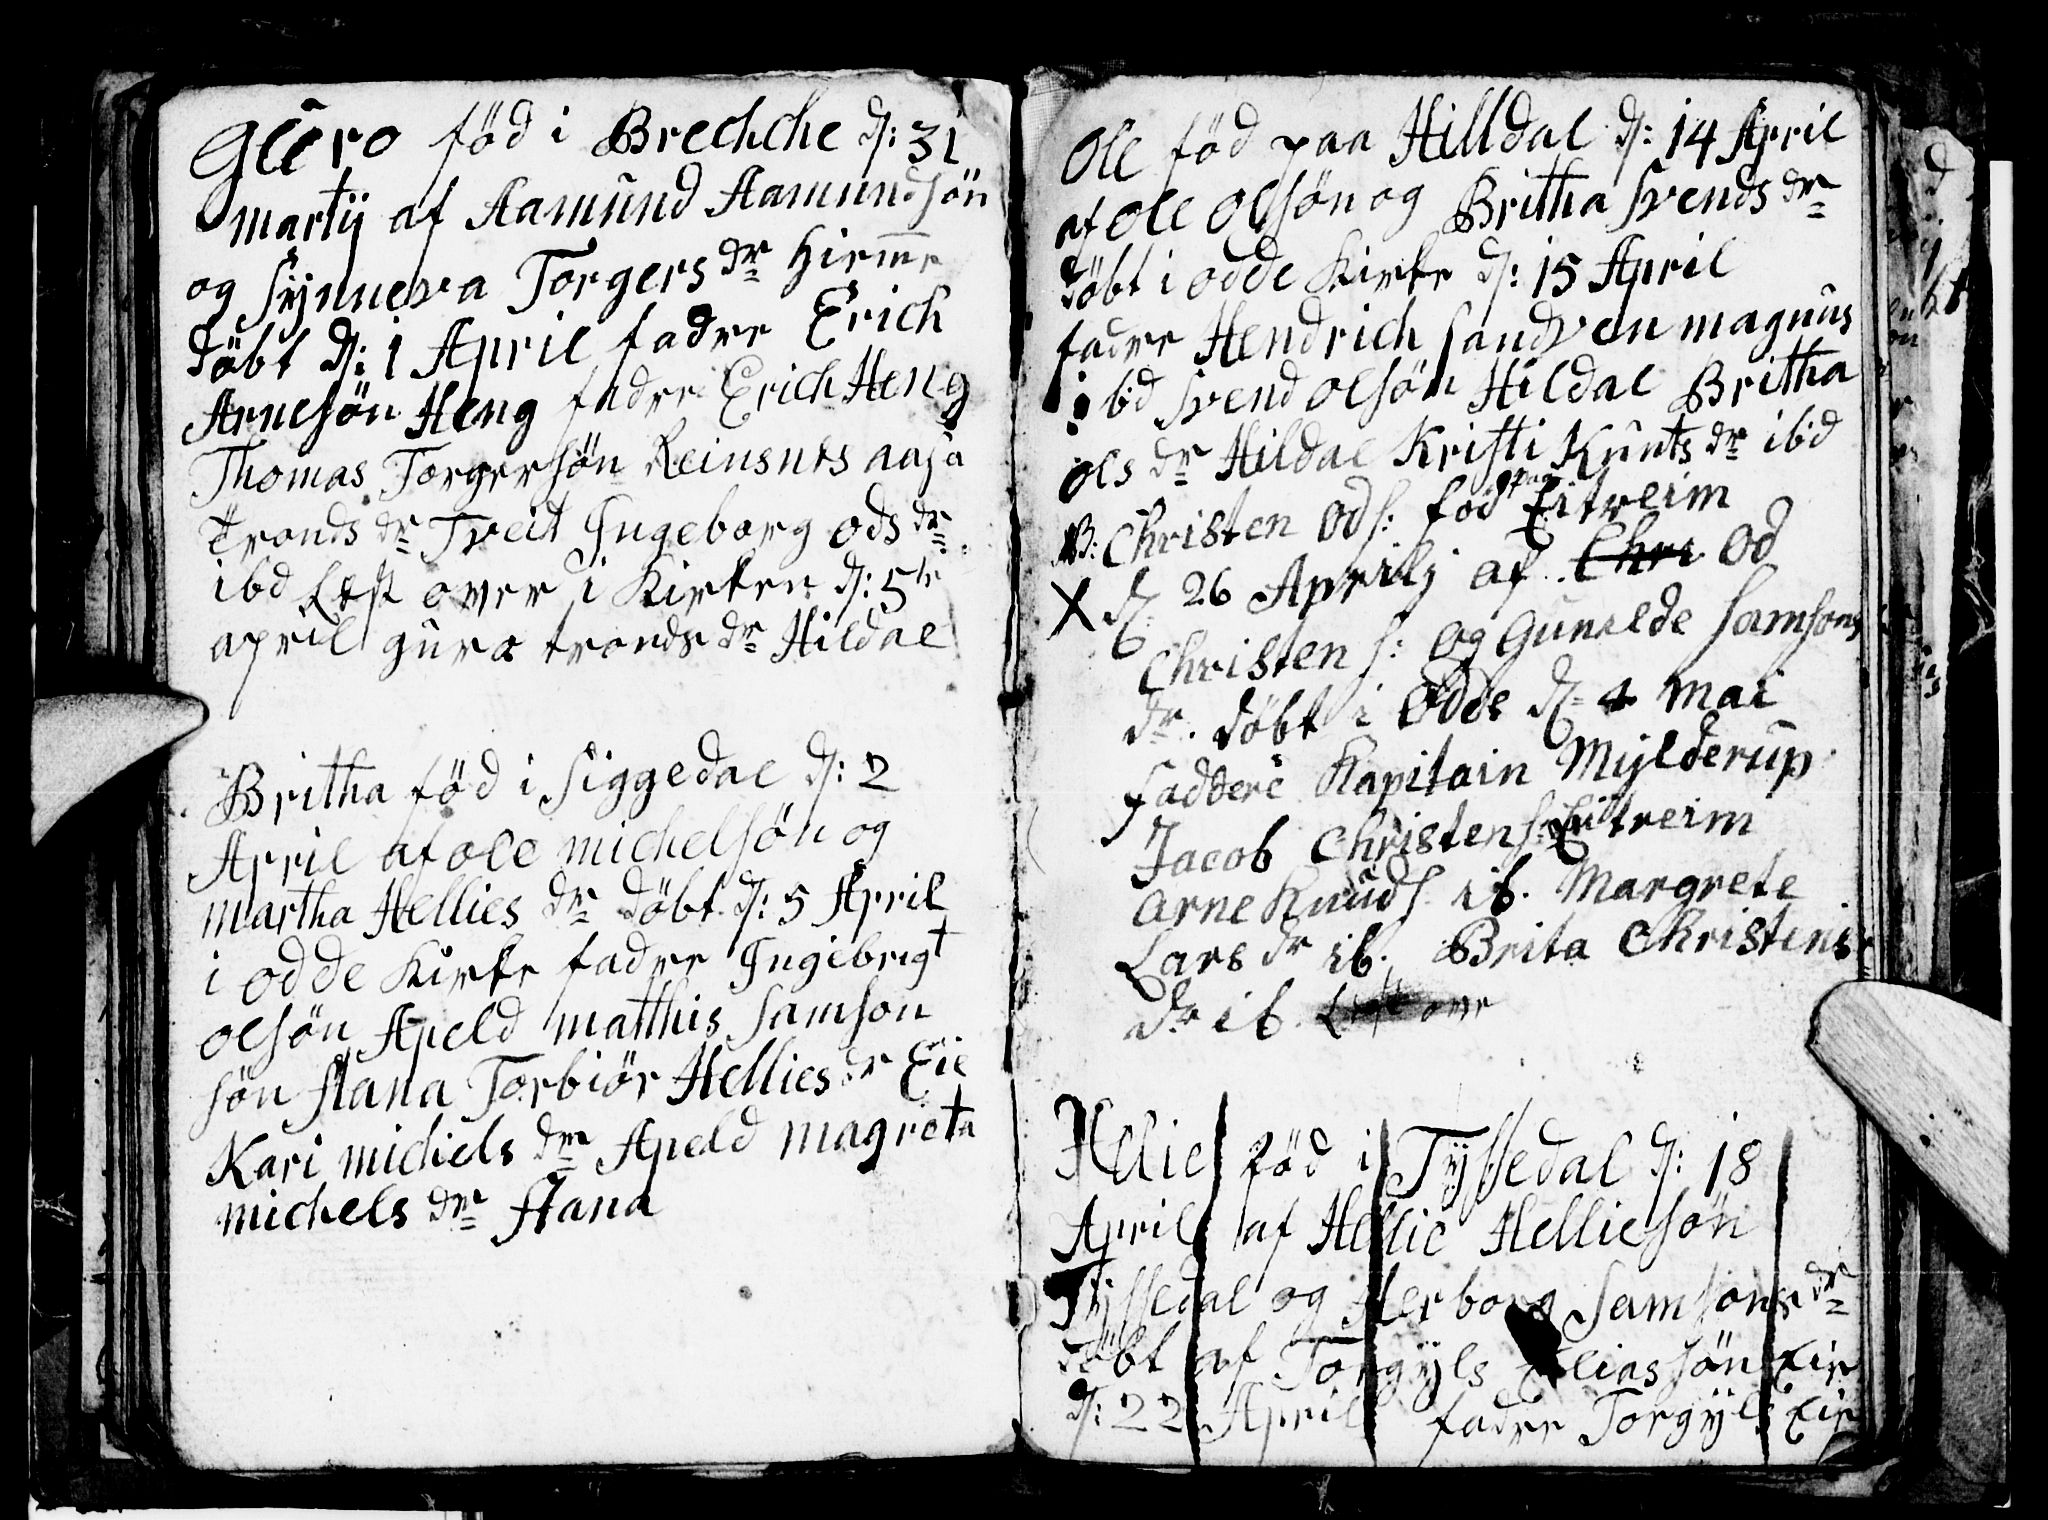 Guro fød i Brechche d: 31
martij af Aamund Aamundsøn
og Synneva Torgers dr hiemme
døbt d: 1 April fadre Erich
Arnesøn Heng fadre Erich Heng
Thomas Torgersøn Reinsnes aasa
tronds dr Tveit Ingeborg ods dr
ibd Lest over i Kirken d: 5te
april guro tronds dr Hildal
Britha fød i Siggedal d: 2
April af ole michelsøn og
martha Hellies dr døbt d: 5 April
i odde Kirke fadre Ingebrigt
olsøn Apeld matthis Samson
søn Aana Torbiør Hellies dr Eie
Kari michels dr Apeld magreta
michels dr Aana
Ole fød paa Hilldal d: 14 April
af ole olsøn og Britha Svends dr
døbt i odde Kirke d: 15 April
fadre Hendrich Sandven magnus
ibd Svend olsøn Hildal Britha
ols dr Hildal Kristi Knuts dr ibd
NB: Christen Ods: fød paa Eitreim
X d. 26 Aprilj af Chri Od
Christen s: og Gunilde Samsons
dr. døbt i Odde d. 4 Mai
faddere Kapitain Mylderup
Jacob Christens: Eitreim
Arne Knuds. ib. Margrete
Lars dr ib. Brita Christens
dr ib. Lest over
Hellie fød i Tyssedal d: 18
April af Hellie Helliesøn
Tyssedal og Herborg Samsons dr
døbt af Torgyls Eliassøn Eie
d: 22 April fadre Torgyls Eie